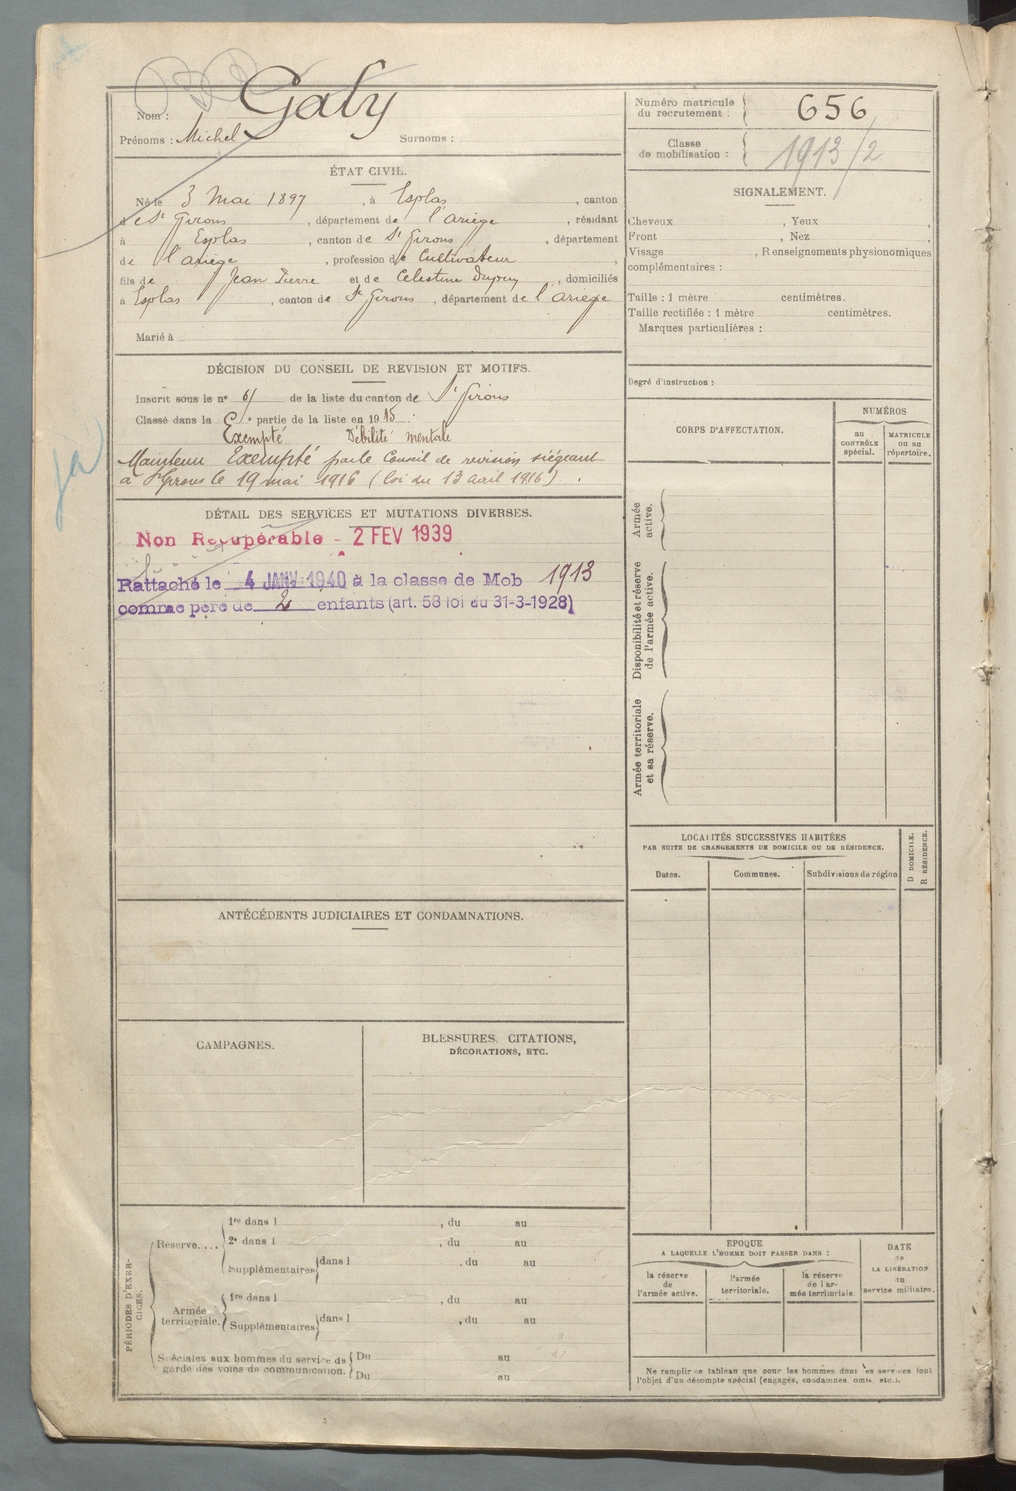 Nom : Galy
Prénoms : Michel Surnoms :
Numéro matricule du recrutement : 656
Classe de mobilisation : 1913/2
ÉTAT CIVIL.
Né le 3 Mai 1897, à Esplas, canton
de St Girons, département de l'Ariège, résidant
à Esplas, canton de St Girons, département
de l'Ariège, profession de Cultivateur,
fils de Jean Pierre et de Célestine Dupuy, domiciliés
à Esplas, canton de St Girons, département de l'Ariège
Marié à
SIGNALEMENT.
Cheveux , Yeux ,
Front , Nez ,
Visage , Renseignements physionomiques
complémentaires :
Taille : 1 mètre centimètres.
Taille rectifiée : 1 mètre centimètres.
Marques particulières :
Degré d'instruction :
DÉCISION DU CONSEIL DE REVISION ET MOTIFS.
Inscrit sous le n° 61 de la liste du canton de St Girons
Classé dans la E. partie de la liste en 1915.
Exempté Débilité mentale
Maintenu Exempté par le Conseil de revision siégeant
à St Girons le 19 mai 1916 (loi du 13 avril 1916).
DÉTAIL DES SERVICES ET MUTATIONS DIVERSES.
Non Récupérable - 2 FEV 1939
Rattaché le 4 JANV 1940 à la classe de Mob 1913
comme père de 2 enfants (art. 58 loi du 31-3-1928)
CORPS D'AFFECTATION.
NUMÉROS
au CONTRÔLE spécial.
MATRICULE ou au répertoire.
Armée active.
Disponibilité et réserve de l'armée active.
Armée territoriale et sa réserve.
LOCALITÉS SUCCESSIVES HABITÉES
PAR SUITE DE CHANGEMENTS DE DOMICILE OU DE RÉSIDENCE.
Dates. Communes. Subdivisions de région
D DOMICILE.
R RÉSIDENCE.
ANTÉCÉDENTS JUDICIAIRES ET CONDAMNATIONS.
CAMPAGNES.
BLESSURES, CITATIONS,
DÉCORATIONS, ETC.
PÉRIODES D'EXERCICES.
Réserve....
1re dans l , du au
2e dans l , du au
Supplémentaires dans l , du au
Armée territoriale.
1re dans l , du au
Supplémentaires dans l , du au
Spéciales aux hommes du service de garde des voies de communication.
Du au
Du au
EPOQUE
A LAQUELLE L'HOMME DOIT PASSER DANS :
la réserve de l'armée active.
l'armée territoriale.
la réserve de l'armée territoriale.
DATE de LA LIBÉRATION du service militaire.
Ne remplir ce tableau que pour les hommes dont les services font
l'objet d'un décompte spécial (engagés, condamnés, omis, etc.).